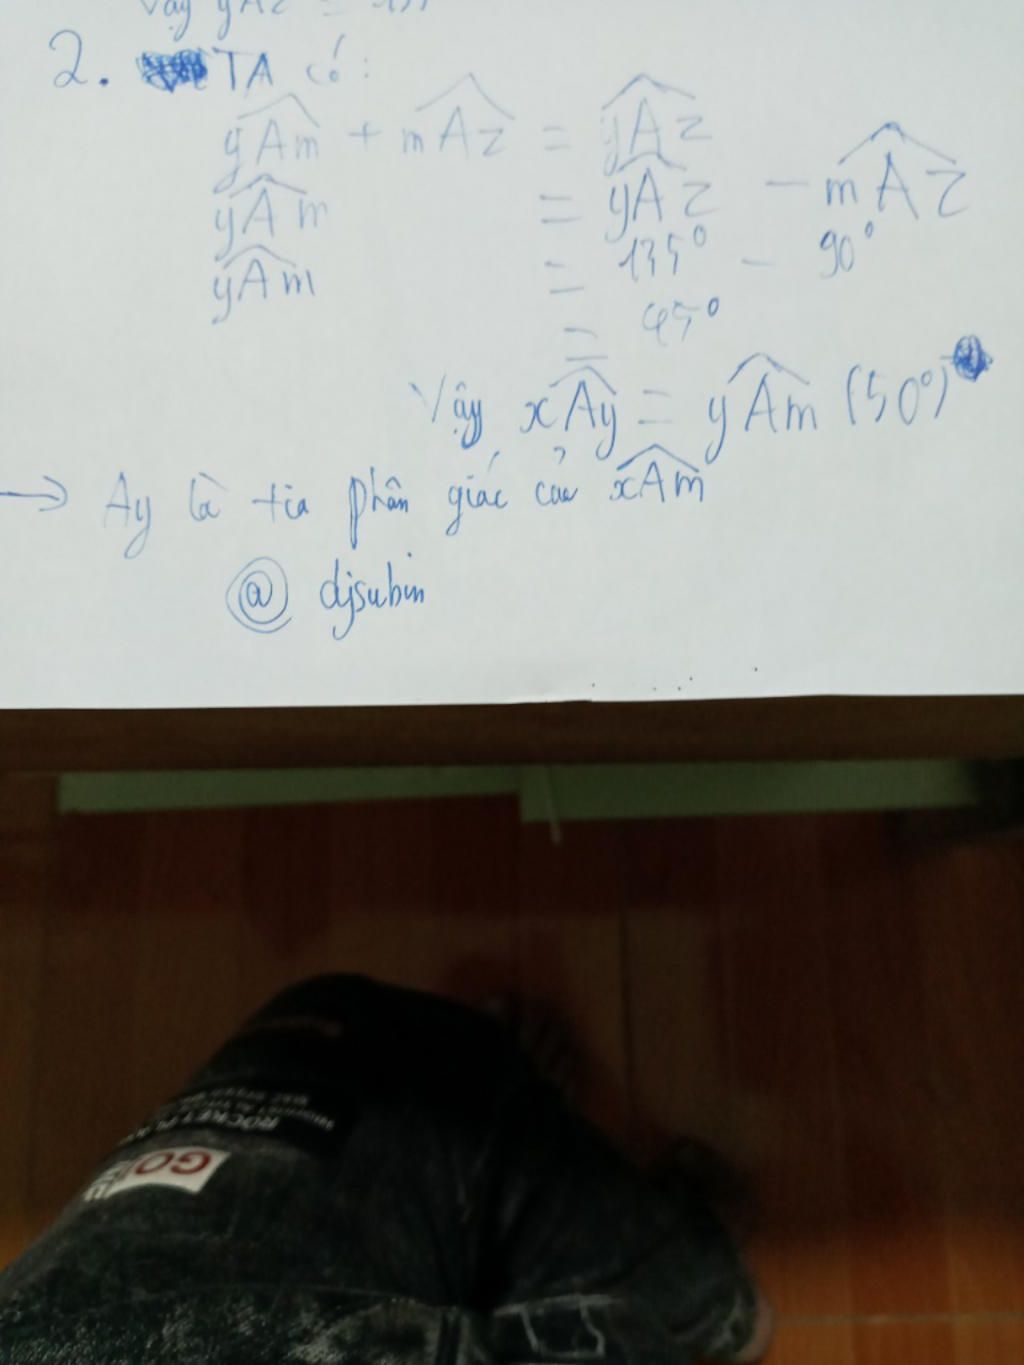 Vậy yAz = 135
2. TA có:
yAm + mAz = yAz
yAm = yAz - mAz
yAm = 135° - 90°
= 45°
Vậy xAy = yAm (50°)
→ Ay là tia phân giác của xAm
@ djsubin
ROCKET
GO